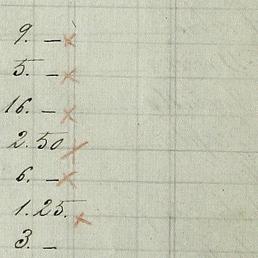 9. –
5. –
16. –
2.50
6. –
1.25.
3. –